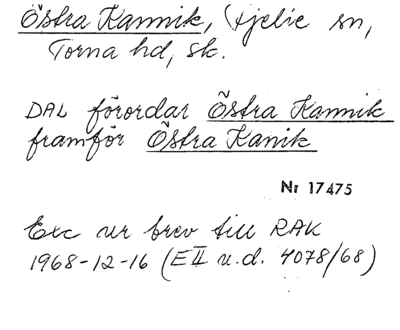 Östra Kannik, Fjelie sn,
Torna hd, sk.
DAL förordar Östra Kannik
framför Östra Kanik
Nr 17475
Exc ur brev till RAK
1968-12-16 (E II u.d. 4078/68)